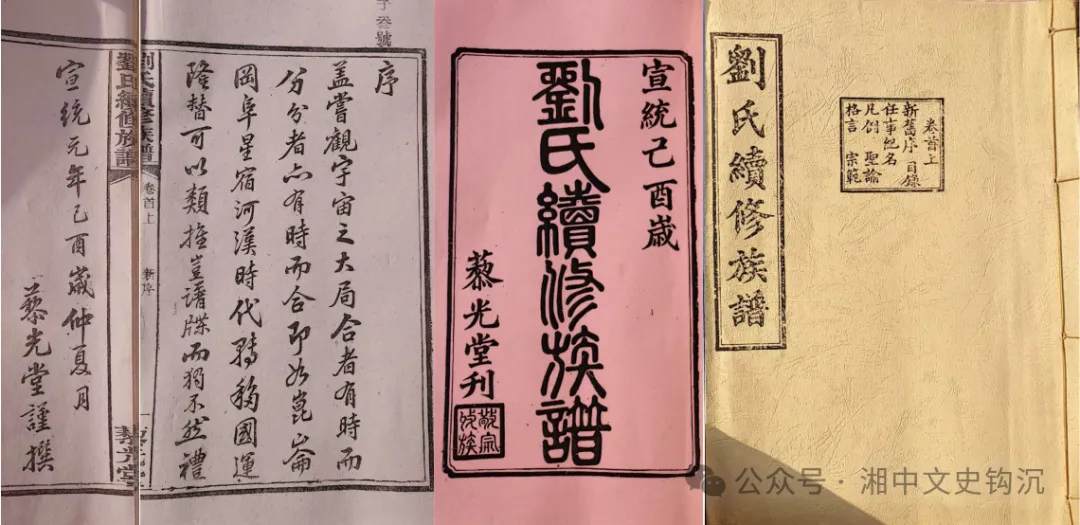 叁號
序
蓋嘗觀宇宙之大局合者有時而
分分者亦有時而合即如崑崙
岡阜星宿河漢時代轉移國運
隆替可以類推豈譜牒而獨不然禮
劉氏續修族譜
卷首上
新序
一
藜光堂
宣統元年己酉歲仲夏月
藜光堂謹撰
宣統己酉歲
劉氏續修族譜
藜光堂刊
敬宗
收族
卷首上
新舊序 目錄
任事紀名
凡例 聖諭
格言 宗範
劉氏續修族譜
公众号·湘中文史钩沉